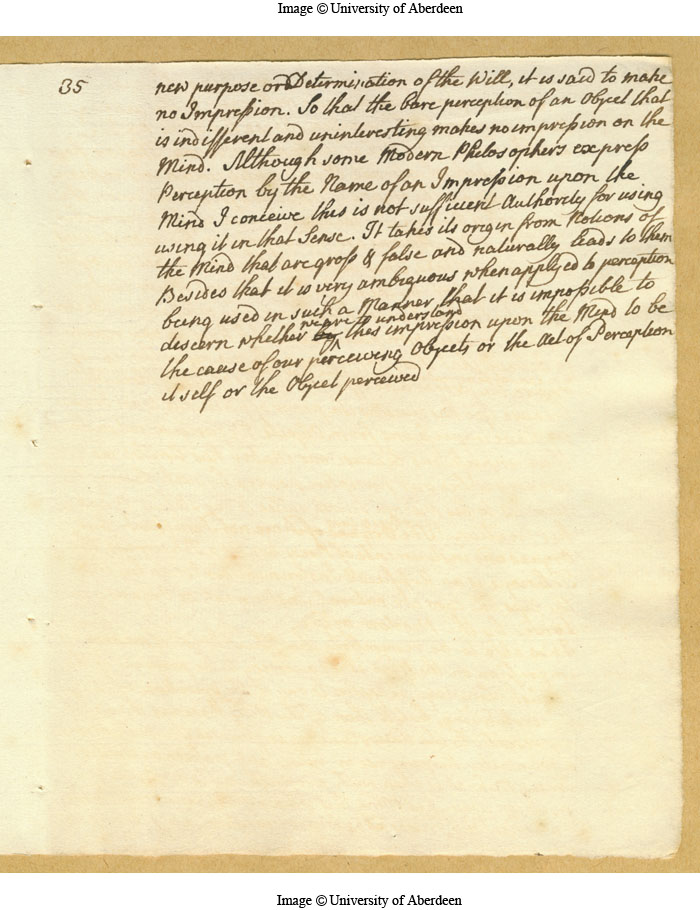 Image © University of Aberdeen
35
new purpose or Determination of the Will, it is said to make
no Impression. So that the bare perception of an Object that
is indifferent and uninteresting makes no impression on the
Mind. Although some Modern Philosophers express
Perception by the Name of an Impression upon the
Mind I conceive this is not sufficient Authority for using
using it in that Sense. It takes its origin from Notions of
the Mind that are gross & false and naturally leads to them
Besides that it is very ambiguous when applyed to perception
being used in such a Manner that it is impossible to
we are to understand
discern whether by this impression upon the Mind to be
the cause of our perceiving Objects or the Act of Perception
itself or the Object perceived
Image © University of Aberdeen